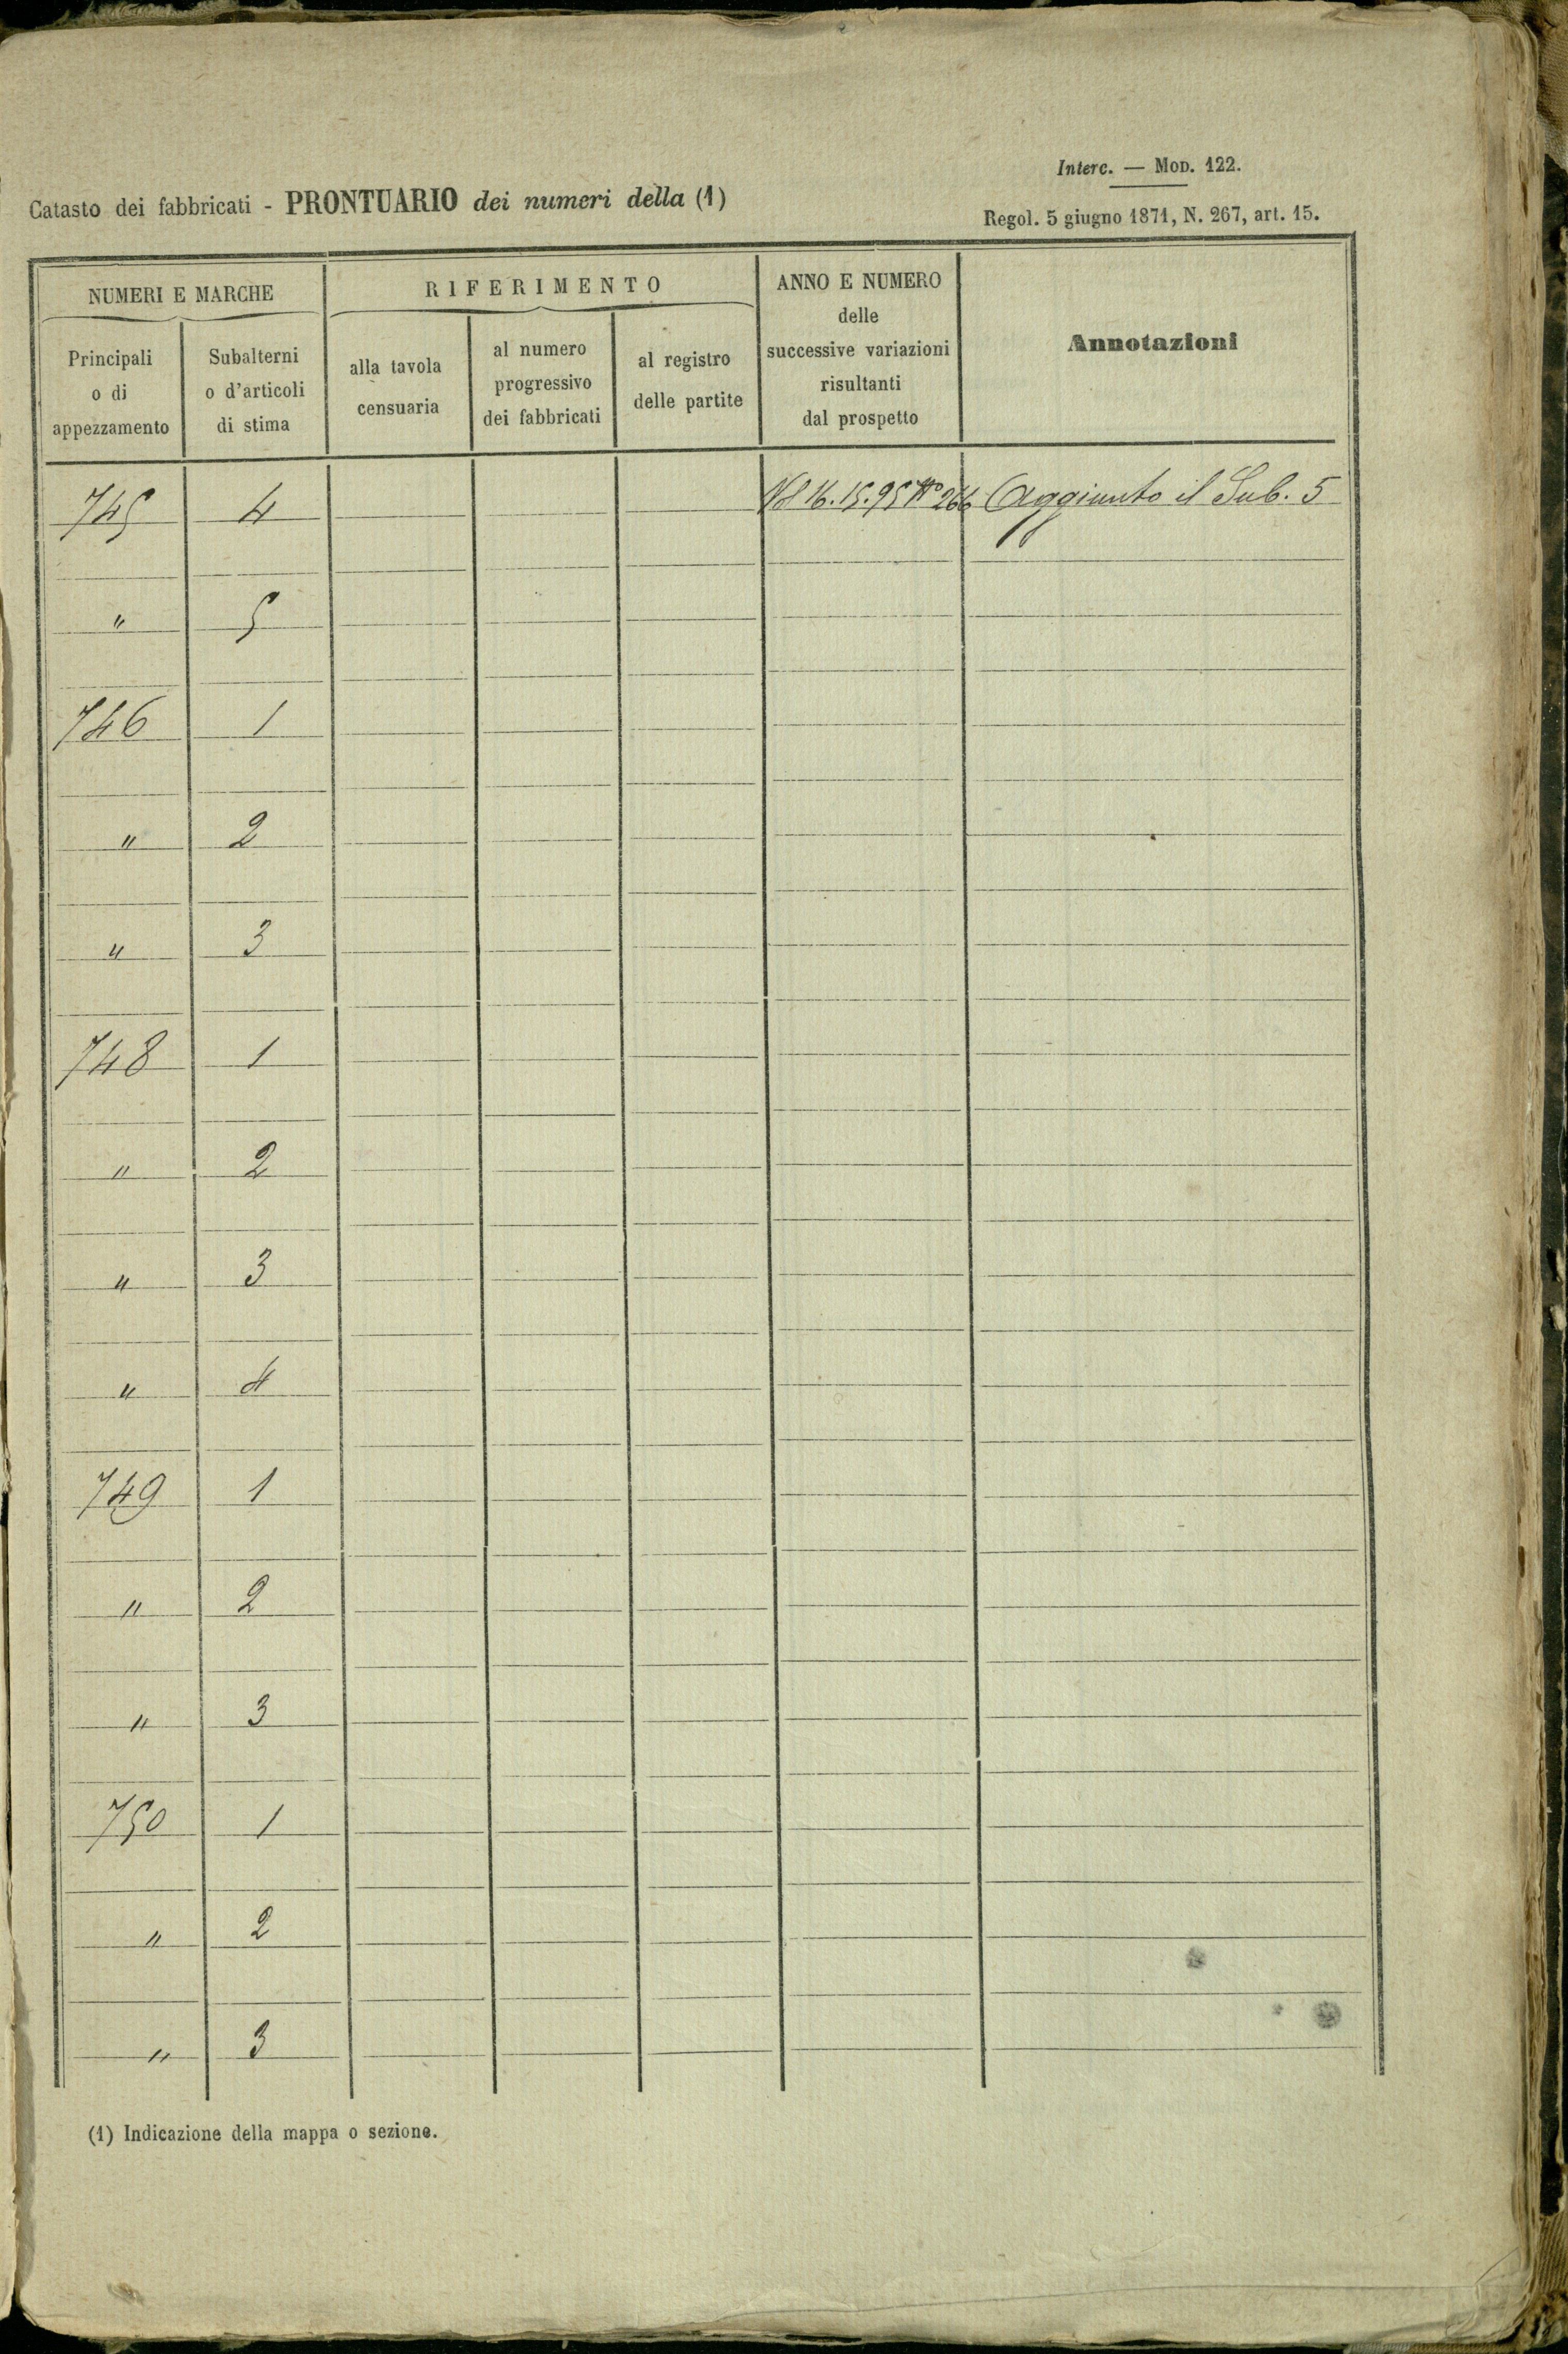 Interc. — Mod. 122.
Catasto dei fabbricati - PRONTUARIO dei numeri della (1)
Regol. 5 giugno 1871, N. 267, art. 15.
NUMERI E MARCHE
Principali
o di
appezzamento
Subalterni
o d'articoli
di stima
RIFERIMENTO
alla tavola
censuaria
al numero
progressivo
dei fabbricati
al registro
delle partite
ANNO E NUMERO
delle
successive variazioni
risultanti
dal prospetto
Annotazioni
745 4 16.15.95 N° 266 Aggiunto il Sub. 5
" 5
746 1
" 2
" 3
748 1
" 2
" 3
" 4
749 1
" 2
" 3
750 1
" 2
" 3
(1) Indicazione della mappa o sezione.